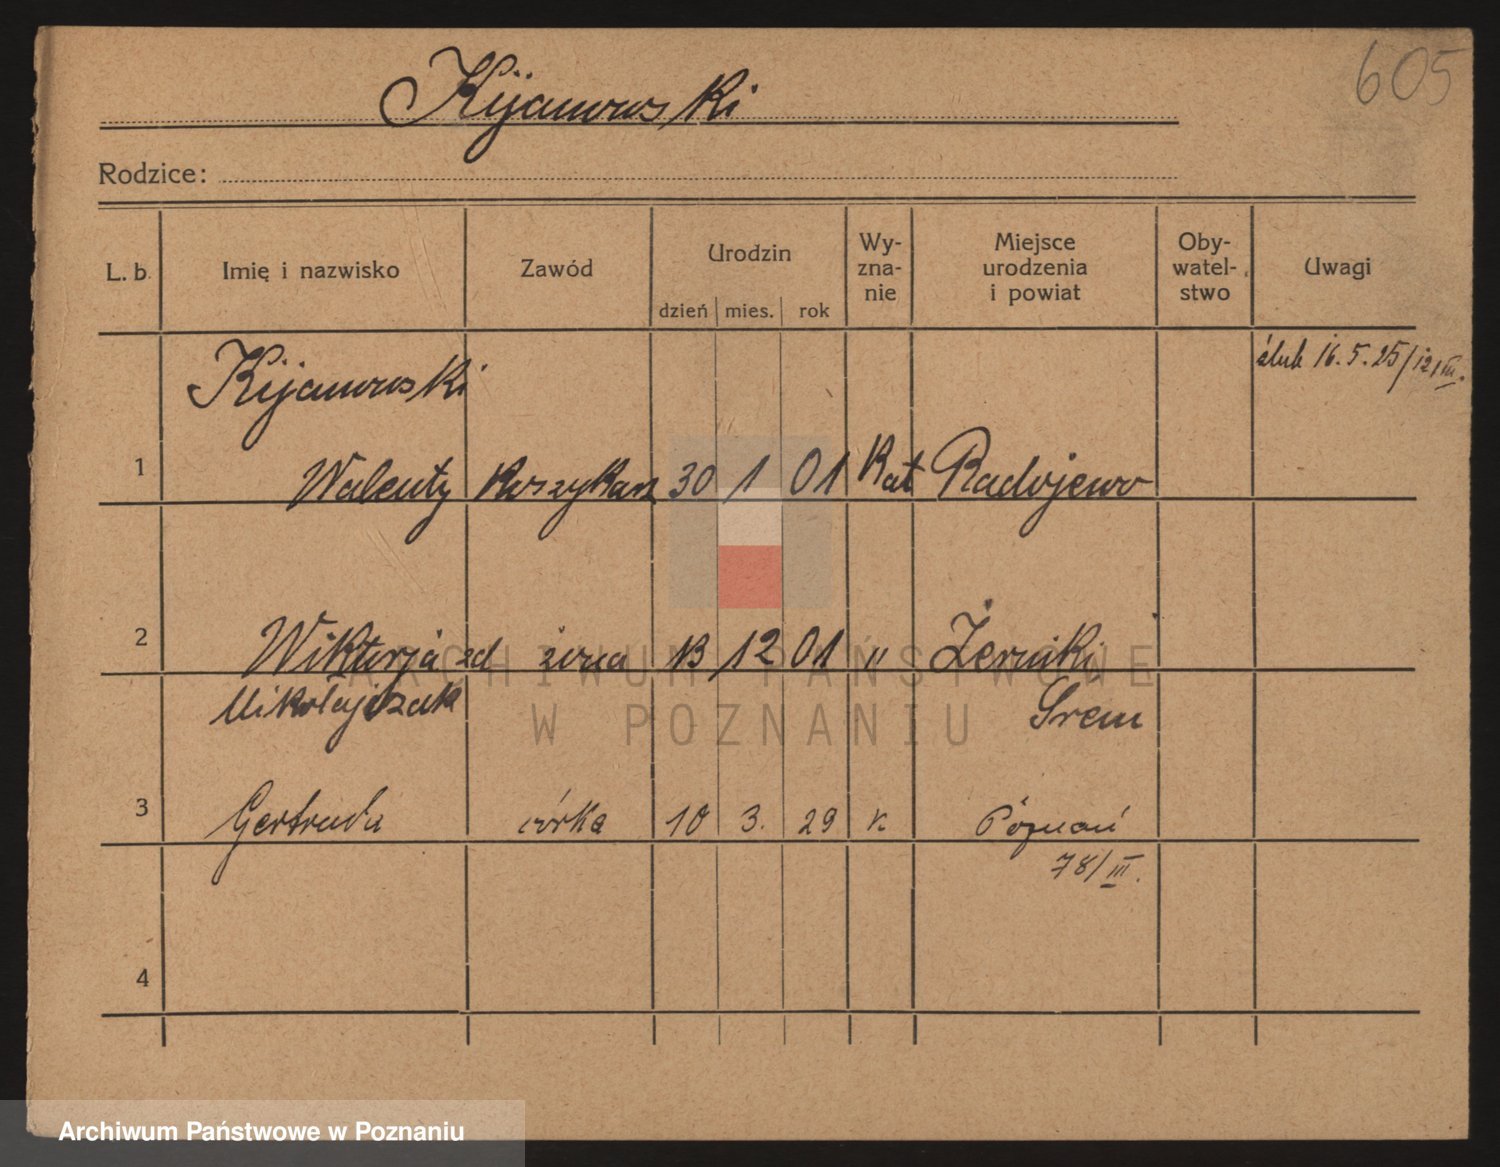 605
Kijanowski
Rodzice:
L. b. Imię i nazwisko Zawód Urodzin dzień mies. rok Wy-zna-nie Miejsce urodzenia i powiat Oby-watel-stwo Uwagi
ślub 16.5.25/121 III.
Kijanowski
1 Walenty Koszykarz 30 1 01 Kat Radojewo
2 Wiktorja zd żona 13 12 01 " Żerniki
Mikołajczak Śrem
3 Gertruda córka 10 3. 29 k Poznań
78/III.
4
ARCHIWUM PAŃSTWOWE
W POZNANIU
Archiwum Państwowe w Poznaniu